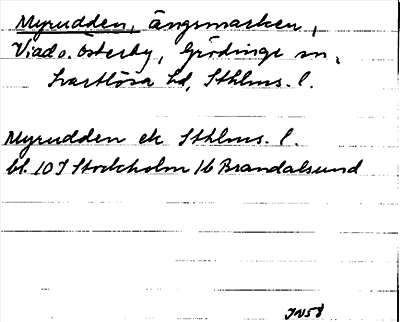 Myrudden, ängsmarken,
Viad o. Österby, Grödinge sn,
Svartlösa hd, Sthlms. l.
Myrudden ek Sthlms. l.
bl. 10 I Stockholm 1b Brandalsund
JN58